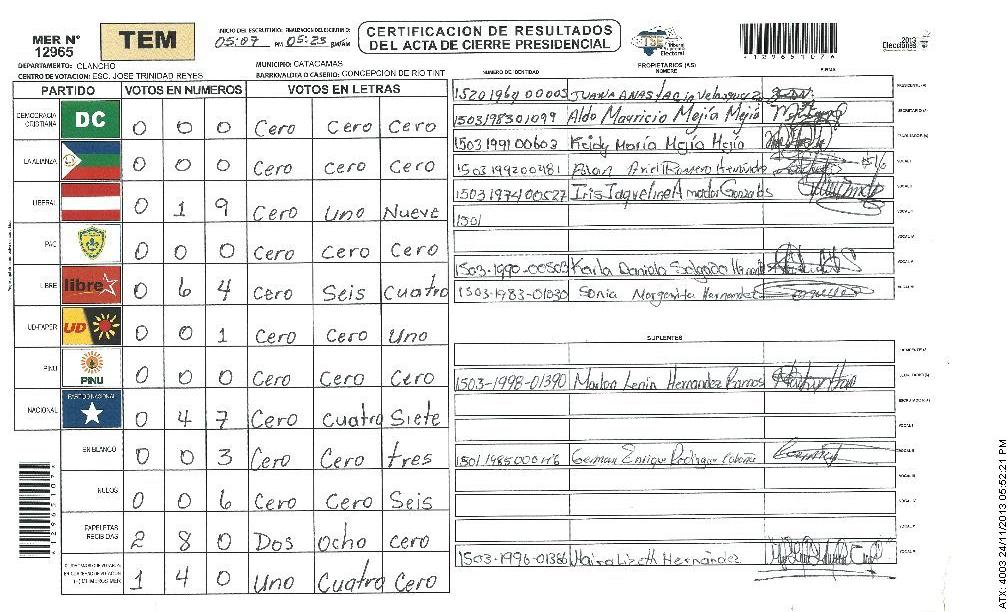 MER N° 12965
TEM
INICIO DEL ESCRUTINIO: FINALIZACION DEL ESCRUTINIO:
05:07 PM 05:23
CERTIFICACION DE RESULTADOS
DEL ACTA DE CIERRE PRESIDENCIAL
TSE Tribunal Supremo Electoral
2013
Elecciones
129651076
DEPARTAMENTO: OLANCHO
MUNICIPIO: CATACAMAS
CENTRO DE VOTACION: ESC. JOSE TRINIDAD REYES
BARRIO/ALDIA O CASERIO: CONCEPCION DE RIO TINT
NUMERO DE IDENTIDAD
PROPIETARIOS (AS)
NOMBRE
FIRMA
PARTIDO VOTOS EN NUMEROS VOTOS EN LETRAS
DEMOCRACIA CRISTIANA DC 0 0 0 Cero Cero Cero
LA ALIANZA 0 0 0 Cero Cero Cero
LIBERAL 0 1 9 Cero Uno Nueve
PAC 0 0 0 Cero Cero Cero
LIBRE libre 0 6 4 Cero Seis Cuatro
UD-FAPER UD 0 0 1 Cero Cero Uno
PINU PINU 0 0 0 Cero Cero Cero
NACIONAL PARTIDO NACIONAL 0 4 7 Cero Cuatro Siete
EN BLANCO 0 0 3 Cero Cero tres
NULOS 0 0 6 Cero Cero Seis
PAPELETAS RECIBIDAS 2 8 0 Dos Ocho cero
1 4 0 Uno Cuatro Cero
JUANA ANASTACIA Velasquez
1503198301099 Aldo Mauricio Mejía Mejía
1503199100603 Keidy María Mejía Mejía
1503199200481
1503197400527 Iris Jaqueline Amador Gonzales
1501
1503-1990-00503 Karla Daniela Salgado
1503-1983-01030 Sonia Margarita Hernandez
SUPLENTES
1503-1998-01390 Marlon Lenin Hernandez Ramos
German Enrique Rodriguez
1503-1996-01366 Maira Lizeth Hernández
129651076
ATX: 4003 24/11/2013 05:52:21 PM